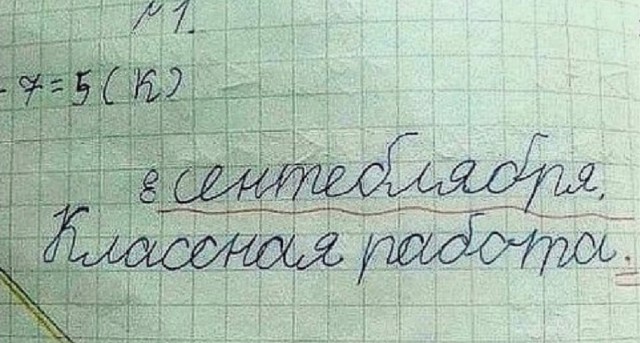 №1.
- 7 = 5 (К)
8 сентеблября.
Классная работа.